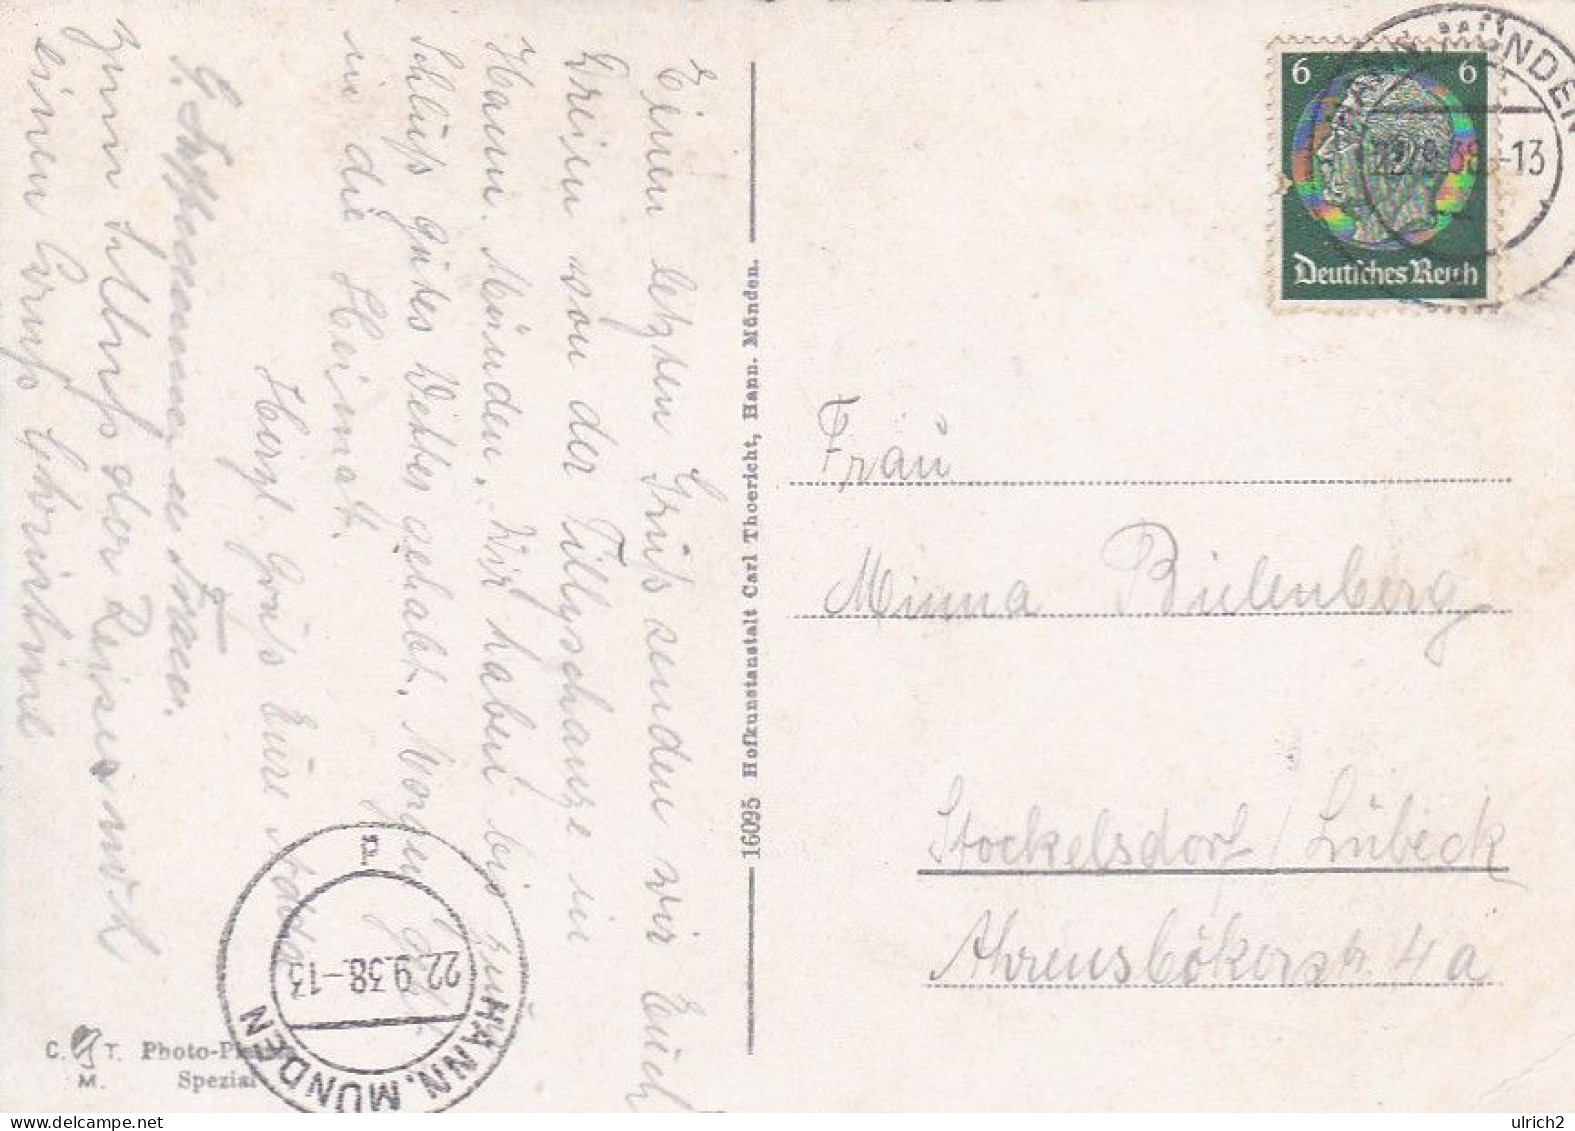 Einen letzten Gruß senden wir Euch
Dreien von der Tillyschanze in
Hann. Münden. Wir haben bis zum
Schluß gutes Wetter gehabt. Morgen geht
in die Heimat.
Herzl. Gruß Eure Adda
G. u Frau.
Zum Schluß der Reise noch
einen Gruß Christine
C. T. Photo-
M. Spezial
16095 Hofkunstanstalt Carl Thoericht, Hann. Münden.
HANN. MÜNDEN
22.9.38.-13
a
6 6
Deutsches Reich
HANN. MÜNDEN
22.9.38.-13
Frau
Minna Bielenberg
Stockelsdorf / Lübeck
Ahrensbökerstr. 4a
ulrich2